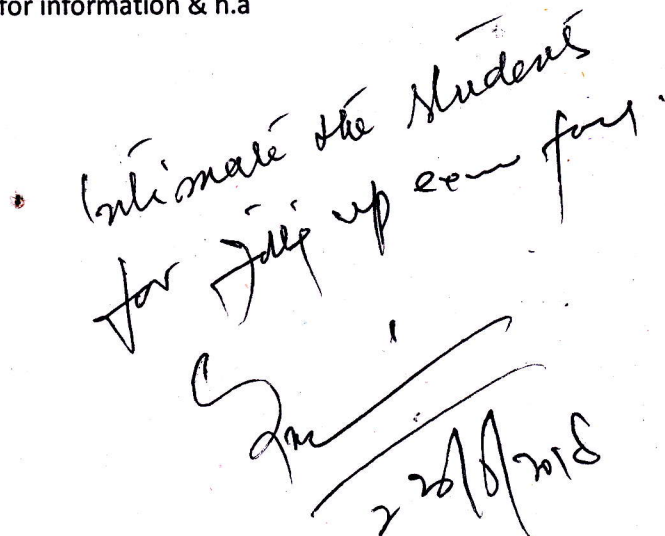 for information & n.a
Intimate the students
for filling up exam form.